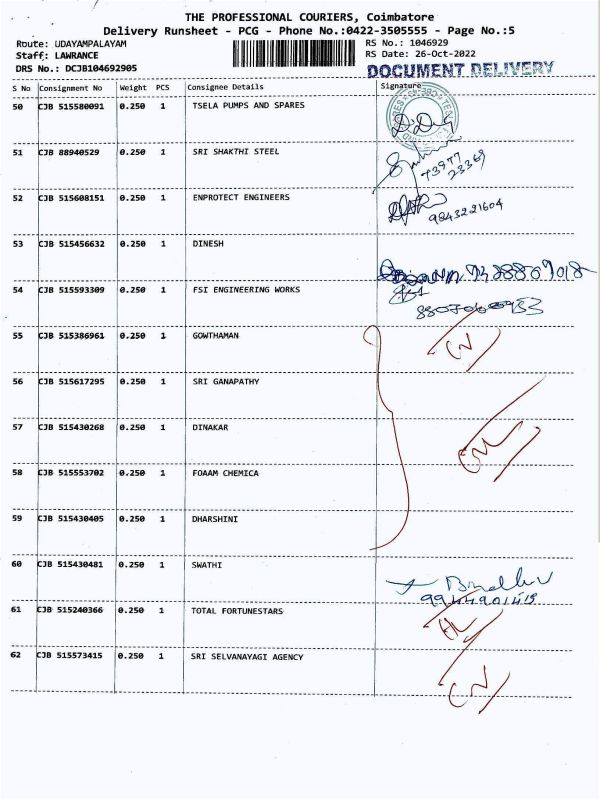 THE PROFESSIONAL COURIERS, Coimbatore
Delivery Runsheet - PCG - Phone No.:0422-3505555 - Page No.:5
Route: UDAYAMPALAYAM RS No.: 1046929
Staff: LAWRANCE RS Date: 26-Oct-2022
DRS No.: DCJB104692905 DOCUMENT DELIVERY
S No Consignment No Weight PCS Consignee Details Signature
50 CJB 515580091 0.250 1 TSELA PUMPS AND SPARES
51 CJB 88940529 0.250 1 SRI SHAKTHI STEEL
73977
23369
52 CJB 515608151 0.250 1 ENPROTECT ENGINEERS
9843221604
53 CJB 515456632 0.250 1 DINESH
54 CJB 515593309 0.250 1 FSI ENGINEERING WORKS
55 CJB 515386961 1 0.250 GOWTHAMAN
56 CJB 515617295 0.250 1 SRI GANAPATHY
57 CJB 515430268 0.250 1 DINAKAR
58 CJB 515553702 0.250 1 FOAAM CHEMICA
59 CJB 515430405 0.250 1 DHARSHINI
60 CJB 515430481 0.250 1 SWATHI
9944901419
61 CJB 515240366 0.250 1 TOTAL FORTUNESTARS
62 CJB 515573415 0.250 1 SRI SELVANAYAGI AGENCY